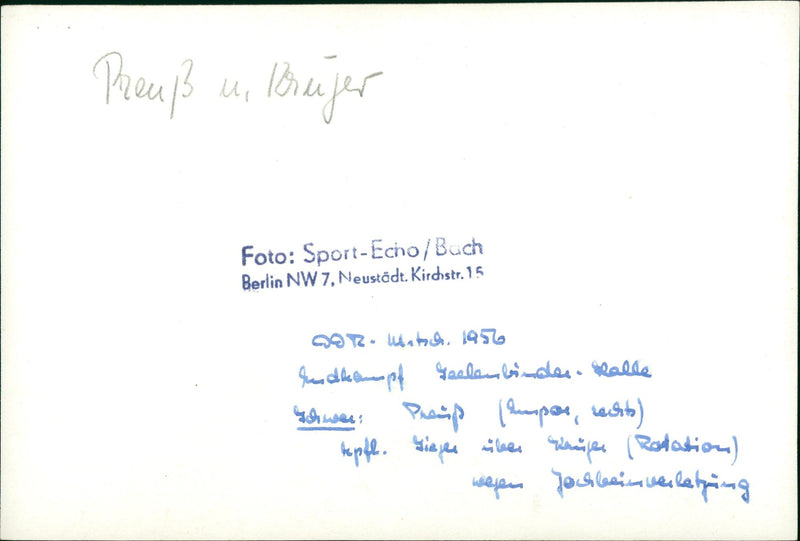 Preuß u. Krüger
Foto: Sport-Echo/Bach
Berlin NW 7, Neustädt. Kirchstr. 15
DDR-Mstsch. 1956
Endkampf Seelenbinder-Halle
Schwer: Preuß (Empor, rechts)
kpfl. Sieger über Krüger (Rotation)
wegen Jochbeinverletzung